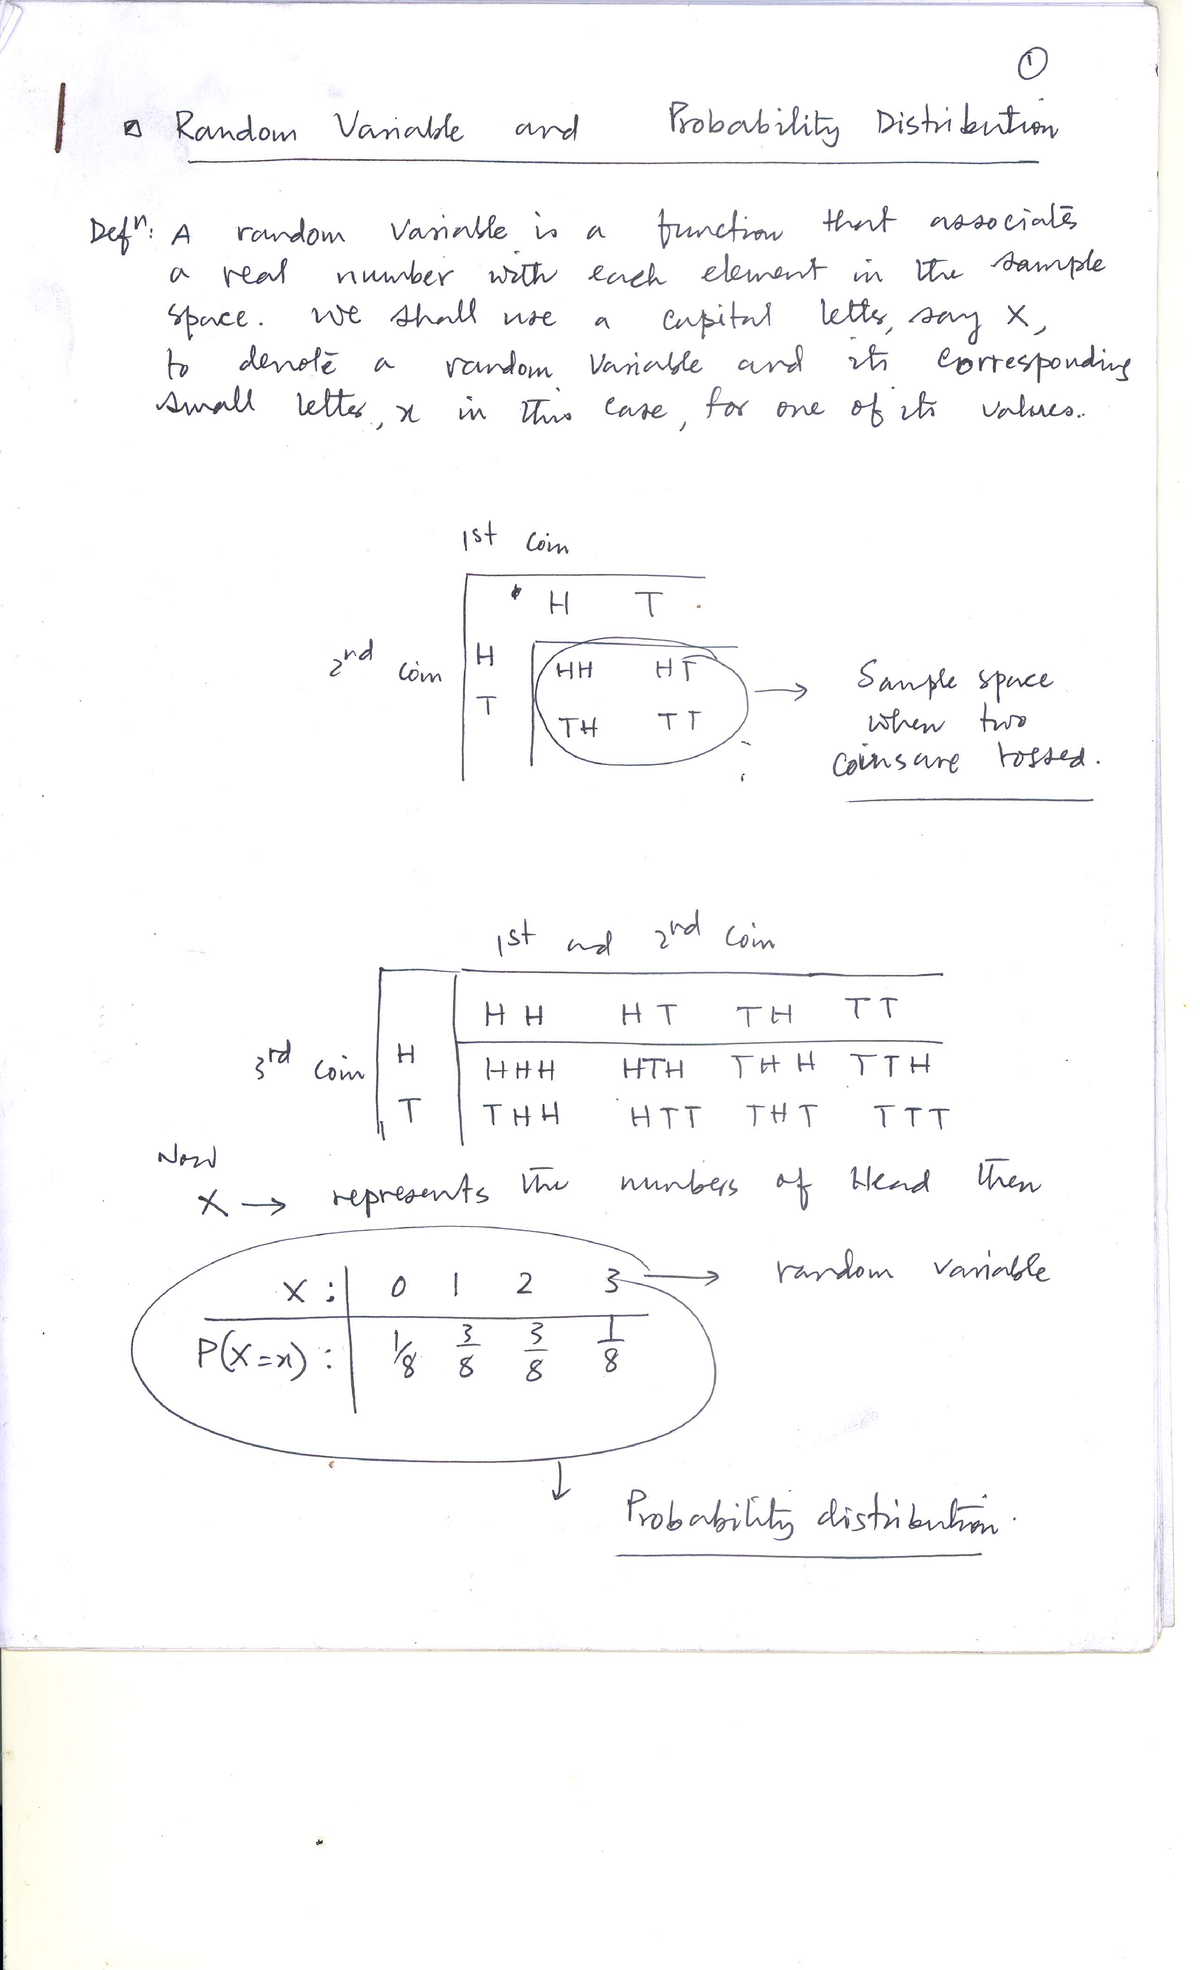 1
Random Variable and Probability Distribution
Defn: A random variable is a function that associates
a real number with each element in the sample
space. We shall use a capital letter, say X,
to denote a random variable and its corresponding
small letter, x in this case, for one of its values.
1st Coin
H T
2nd Coin H HH HT → Sample space
T TH TT when two
coins are tossed.
1st and 2nd Coin
HH HT TH TT
3rd Coin H HHH HTH THH TTH
T THH HTT THT TTT
Now
X → represents the numbers of Head then
X : 0 1 2 3 → random variable
P(X=x) : 1/8 3/8 3/8 1/8
↓
Probability distribution.